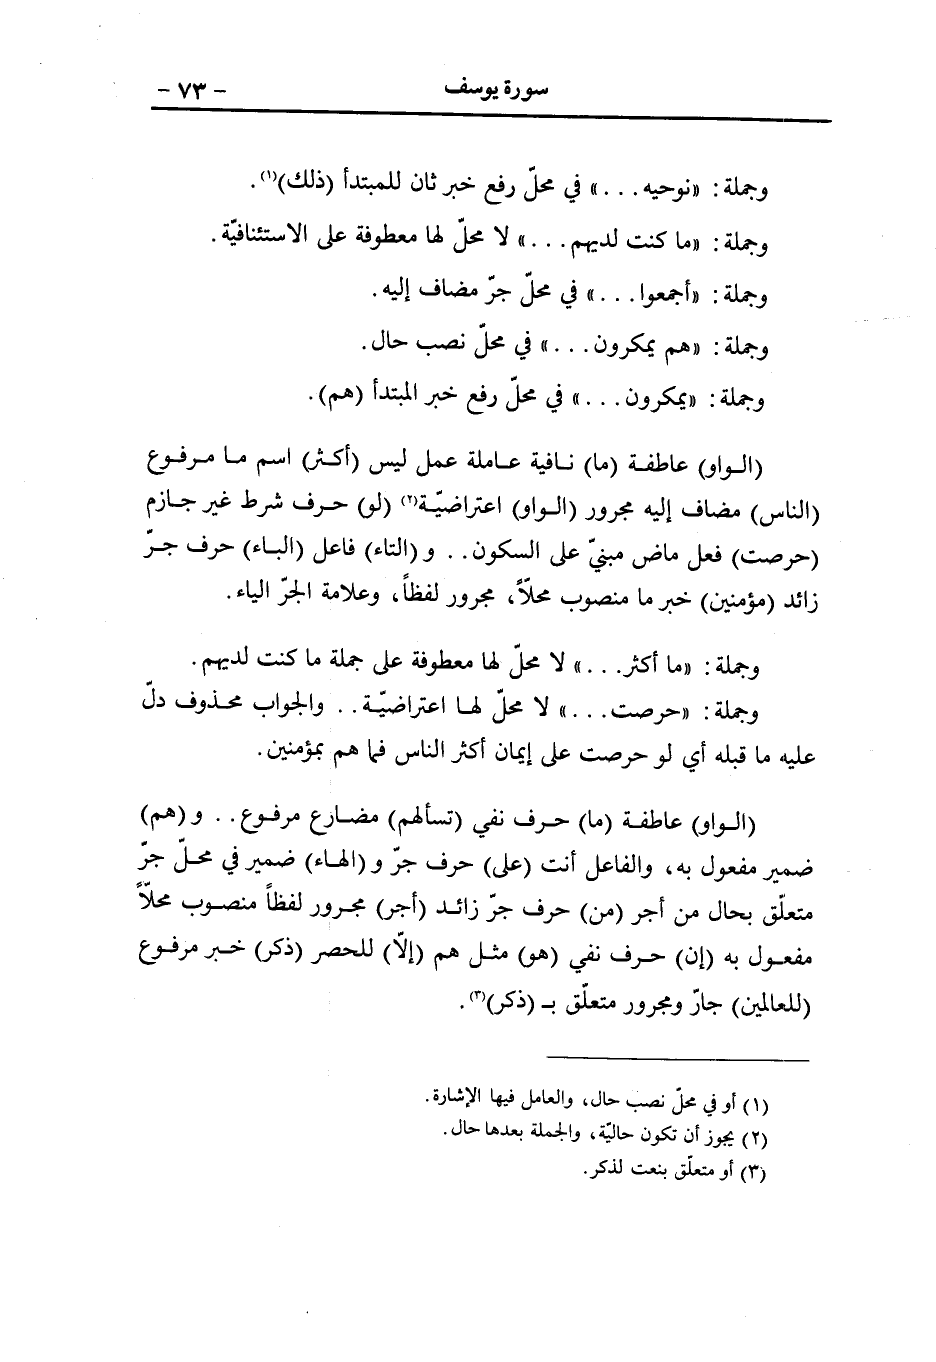 سورة يوسف - ٧٣ -
وجملة: «نوحيه...» في محلّ رفع خبر ثان للمبتدأ (ذلك)(١).
وجملة: «ما كنت لديهم...» لا محلّ لها معطوفة على الاستئنافيّة.
وجملة: «أجمعوا...» في محلّ جرّ مضاف إليه.
وجملة: «هم يمكرون...» في محلّ نصب حال.
وجملة: «يمكرون...» في محلّ رفع خبر المبتدأ (هم).
(الواو) عاطفة (ما) نافية عاملة عمل ليس (أكثر) اسم ما مرفوع
(الناس) مضاف إليه مجرور (الواو) اعتراضيّة(٢) (لو) حرف شرط غير جازم
(حرصت) فعل ماض مبنيّ على السكون.. و(التاء) فاعل (الباء) حرف جرّ
زائد (مؤمنين) خبر ما منصوب محلاًّ، مجرور لفظاً، وعلامة الجرّ الياء.
وجملة: «ما أكثر...» لا محلّ لها معطوفة على جملة ما كنت لديهم.
وجملة: «حرصت...» لا محلّ لها اعتراضيّة.. والجواب محذوف دلّ
عليه ما قبله أي لو حرصت على إيمان أكثر الناس فما هم بمؤمنين.
(الواو) عاطفة (ما) حرف نفي (تسألهم) مضارع مرفوع.. و(هم)
ضمير مفعول به، والفاعل أنت (على) حرف جرّ و(الهاء) ضمير في محلّ جرّ
متعلّق بحال من أجر (من) حرف جرّ زائد (أجر) مجرور لفظاً منصوب محلاًّ
مفعول به (إن) حرف نفي (هو) مثل هم (إلّا) للحصر (ذكر) خبر مرفوع
(للعالمين) جارّ ومجرور متعلّق بـ (ذكر)(٣).
(١) أو في محلّ نصب حال، والعامل فيها الإشارة.
(٢) يجوز أن تكون حاليّة، والجملة بعدها حال.
(٣) أو متعلّق بنعت لذكر.